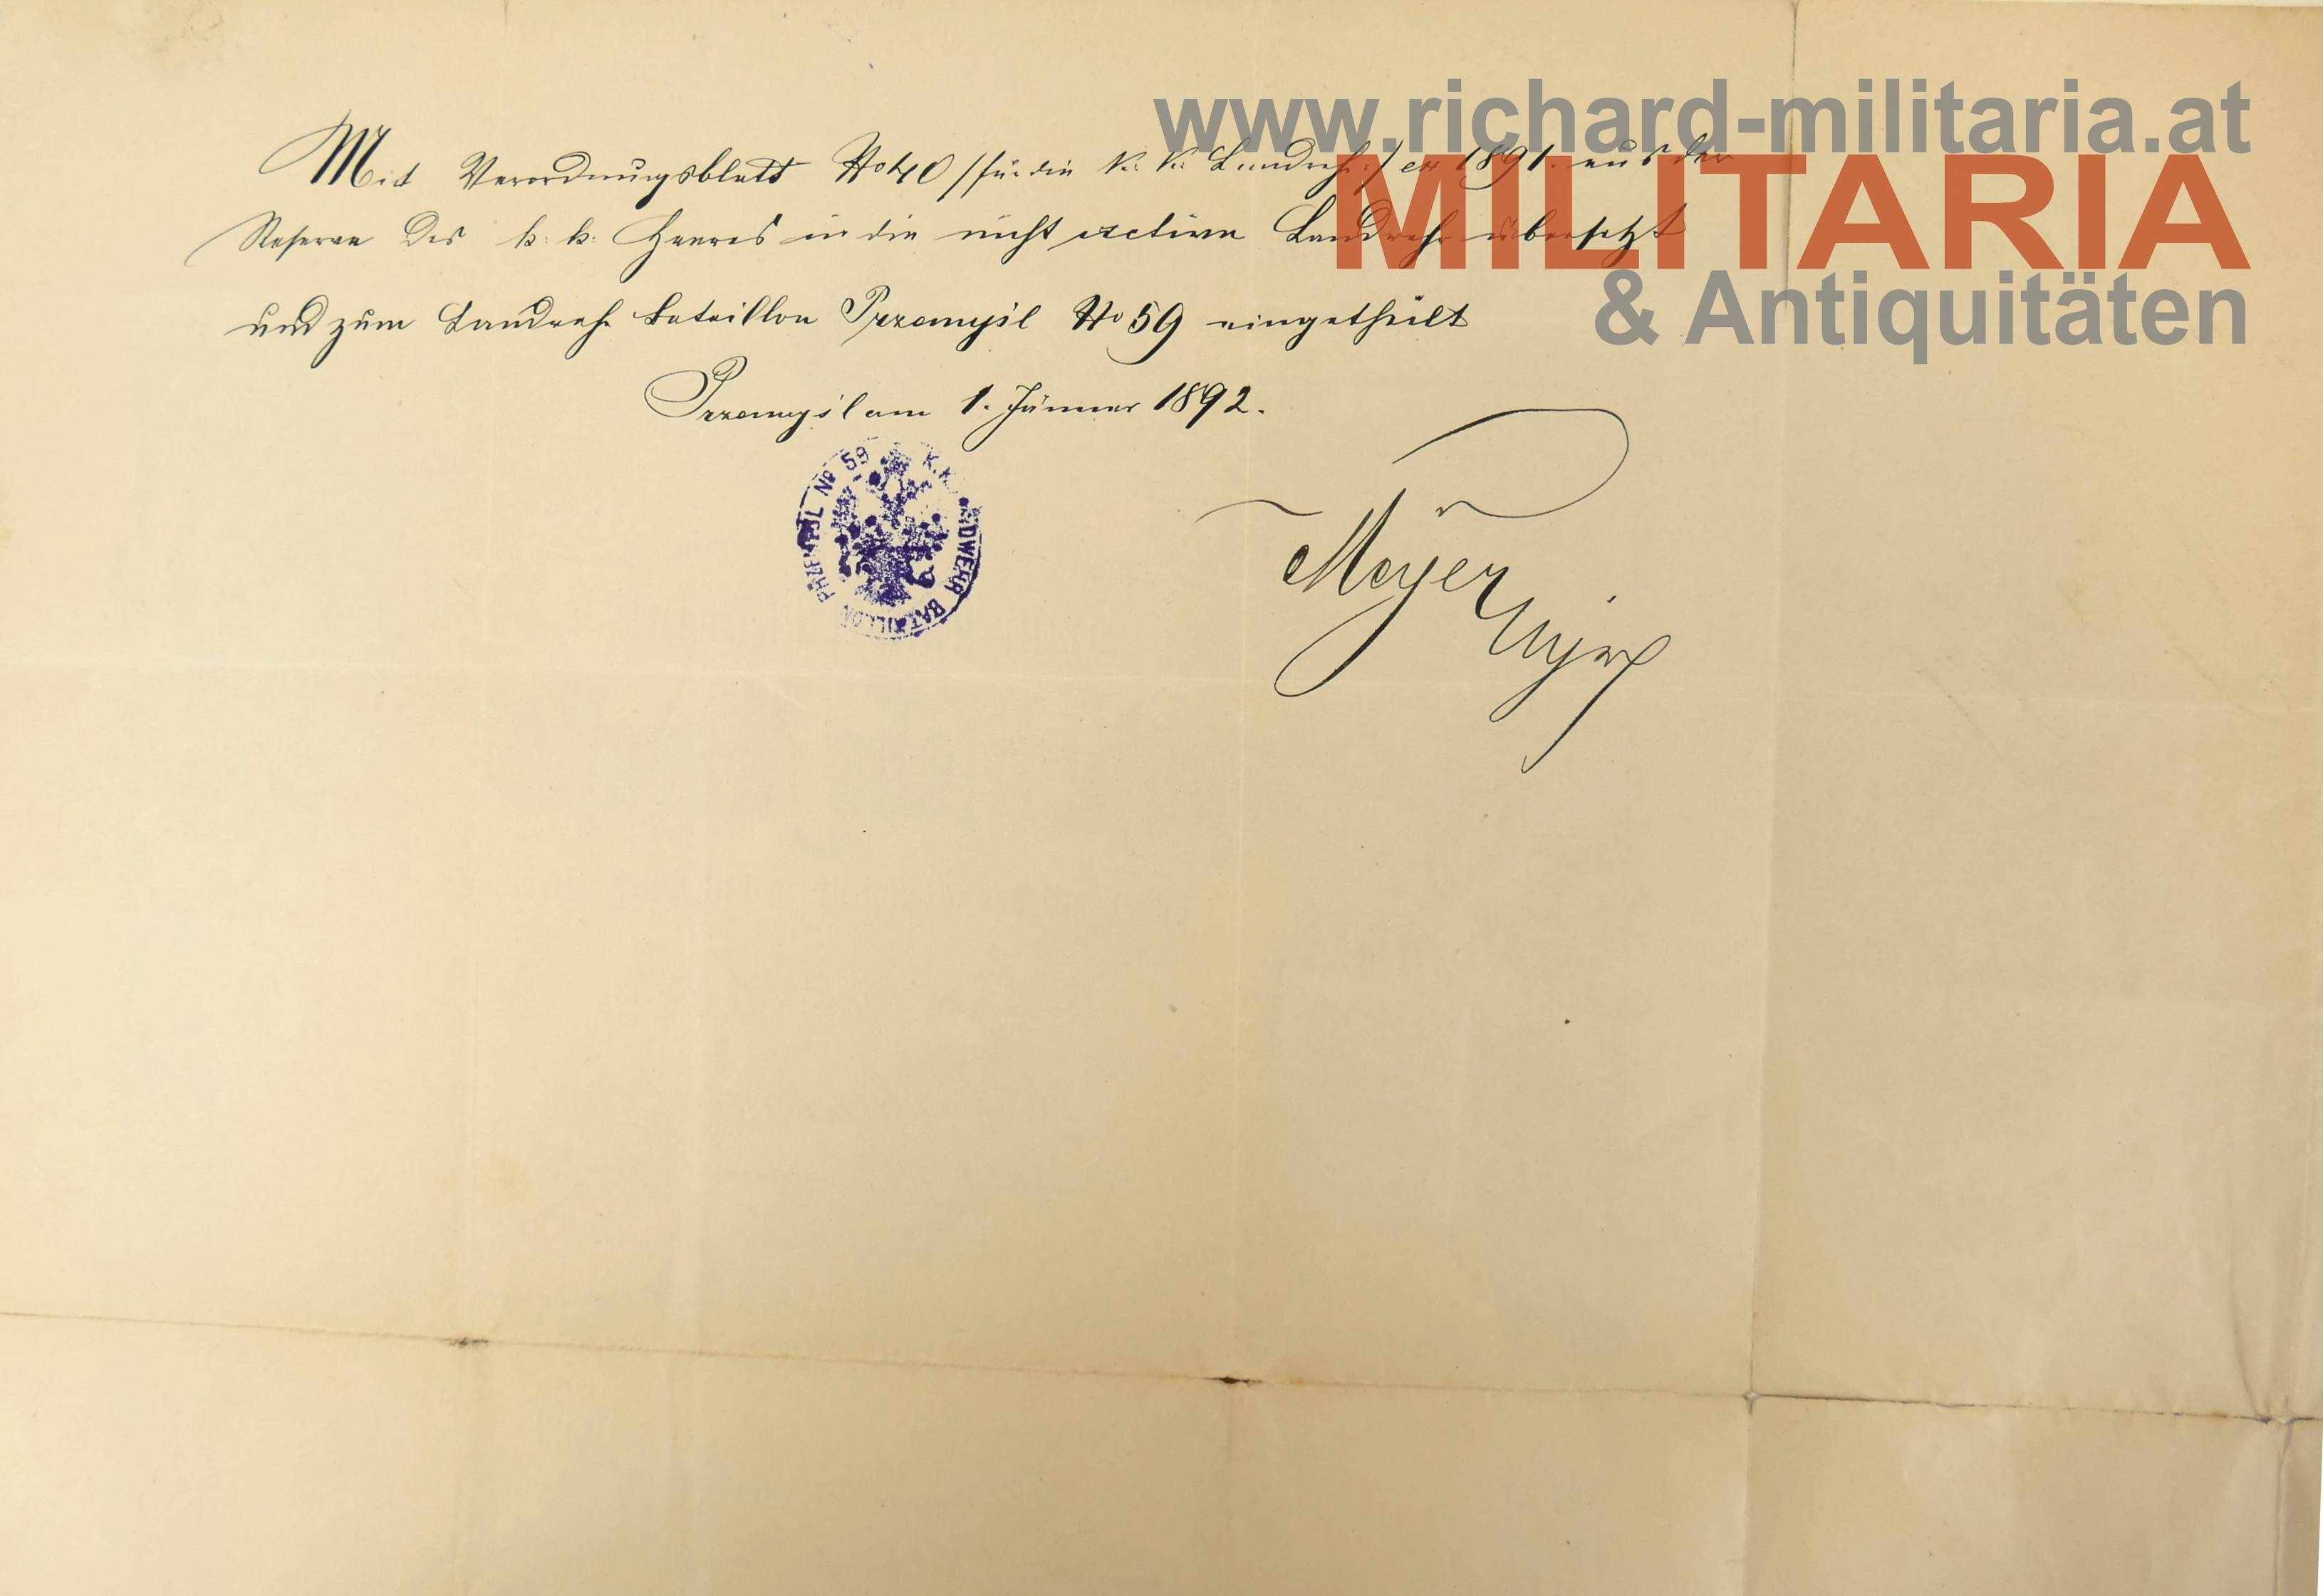 www.richard-militaria.at
MILITARIA
& Antiquitäten
Mit Verordnungsblatt No 40 /:für die k. k. Landwehr:/ ex 1891. aus der
Reserve des k. k. Heeres in die nicht active Landwehr übersetzt
und zum Landwehr Bataillon Przemyśl No 59 eingetheilt
Przemyśl am 1. Jänner 1892.
K.K. LANDWEHR BATAILLON PRZEMYSL No 59
Meyer
Major